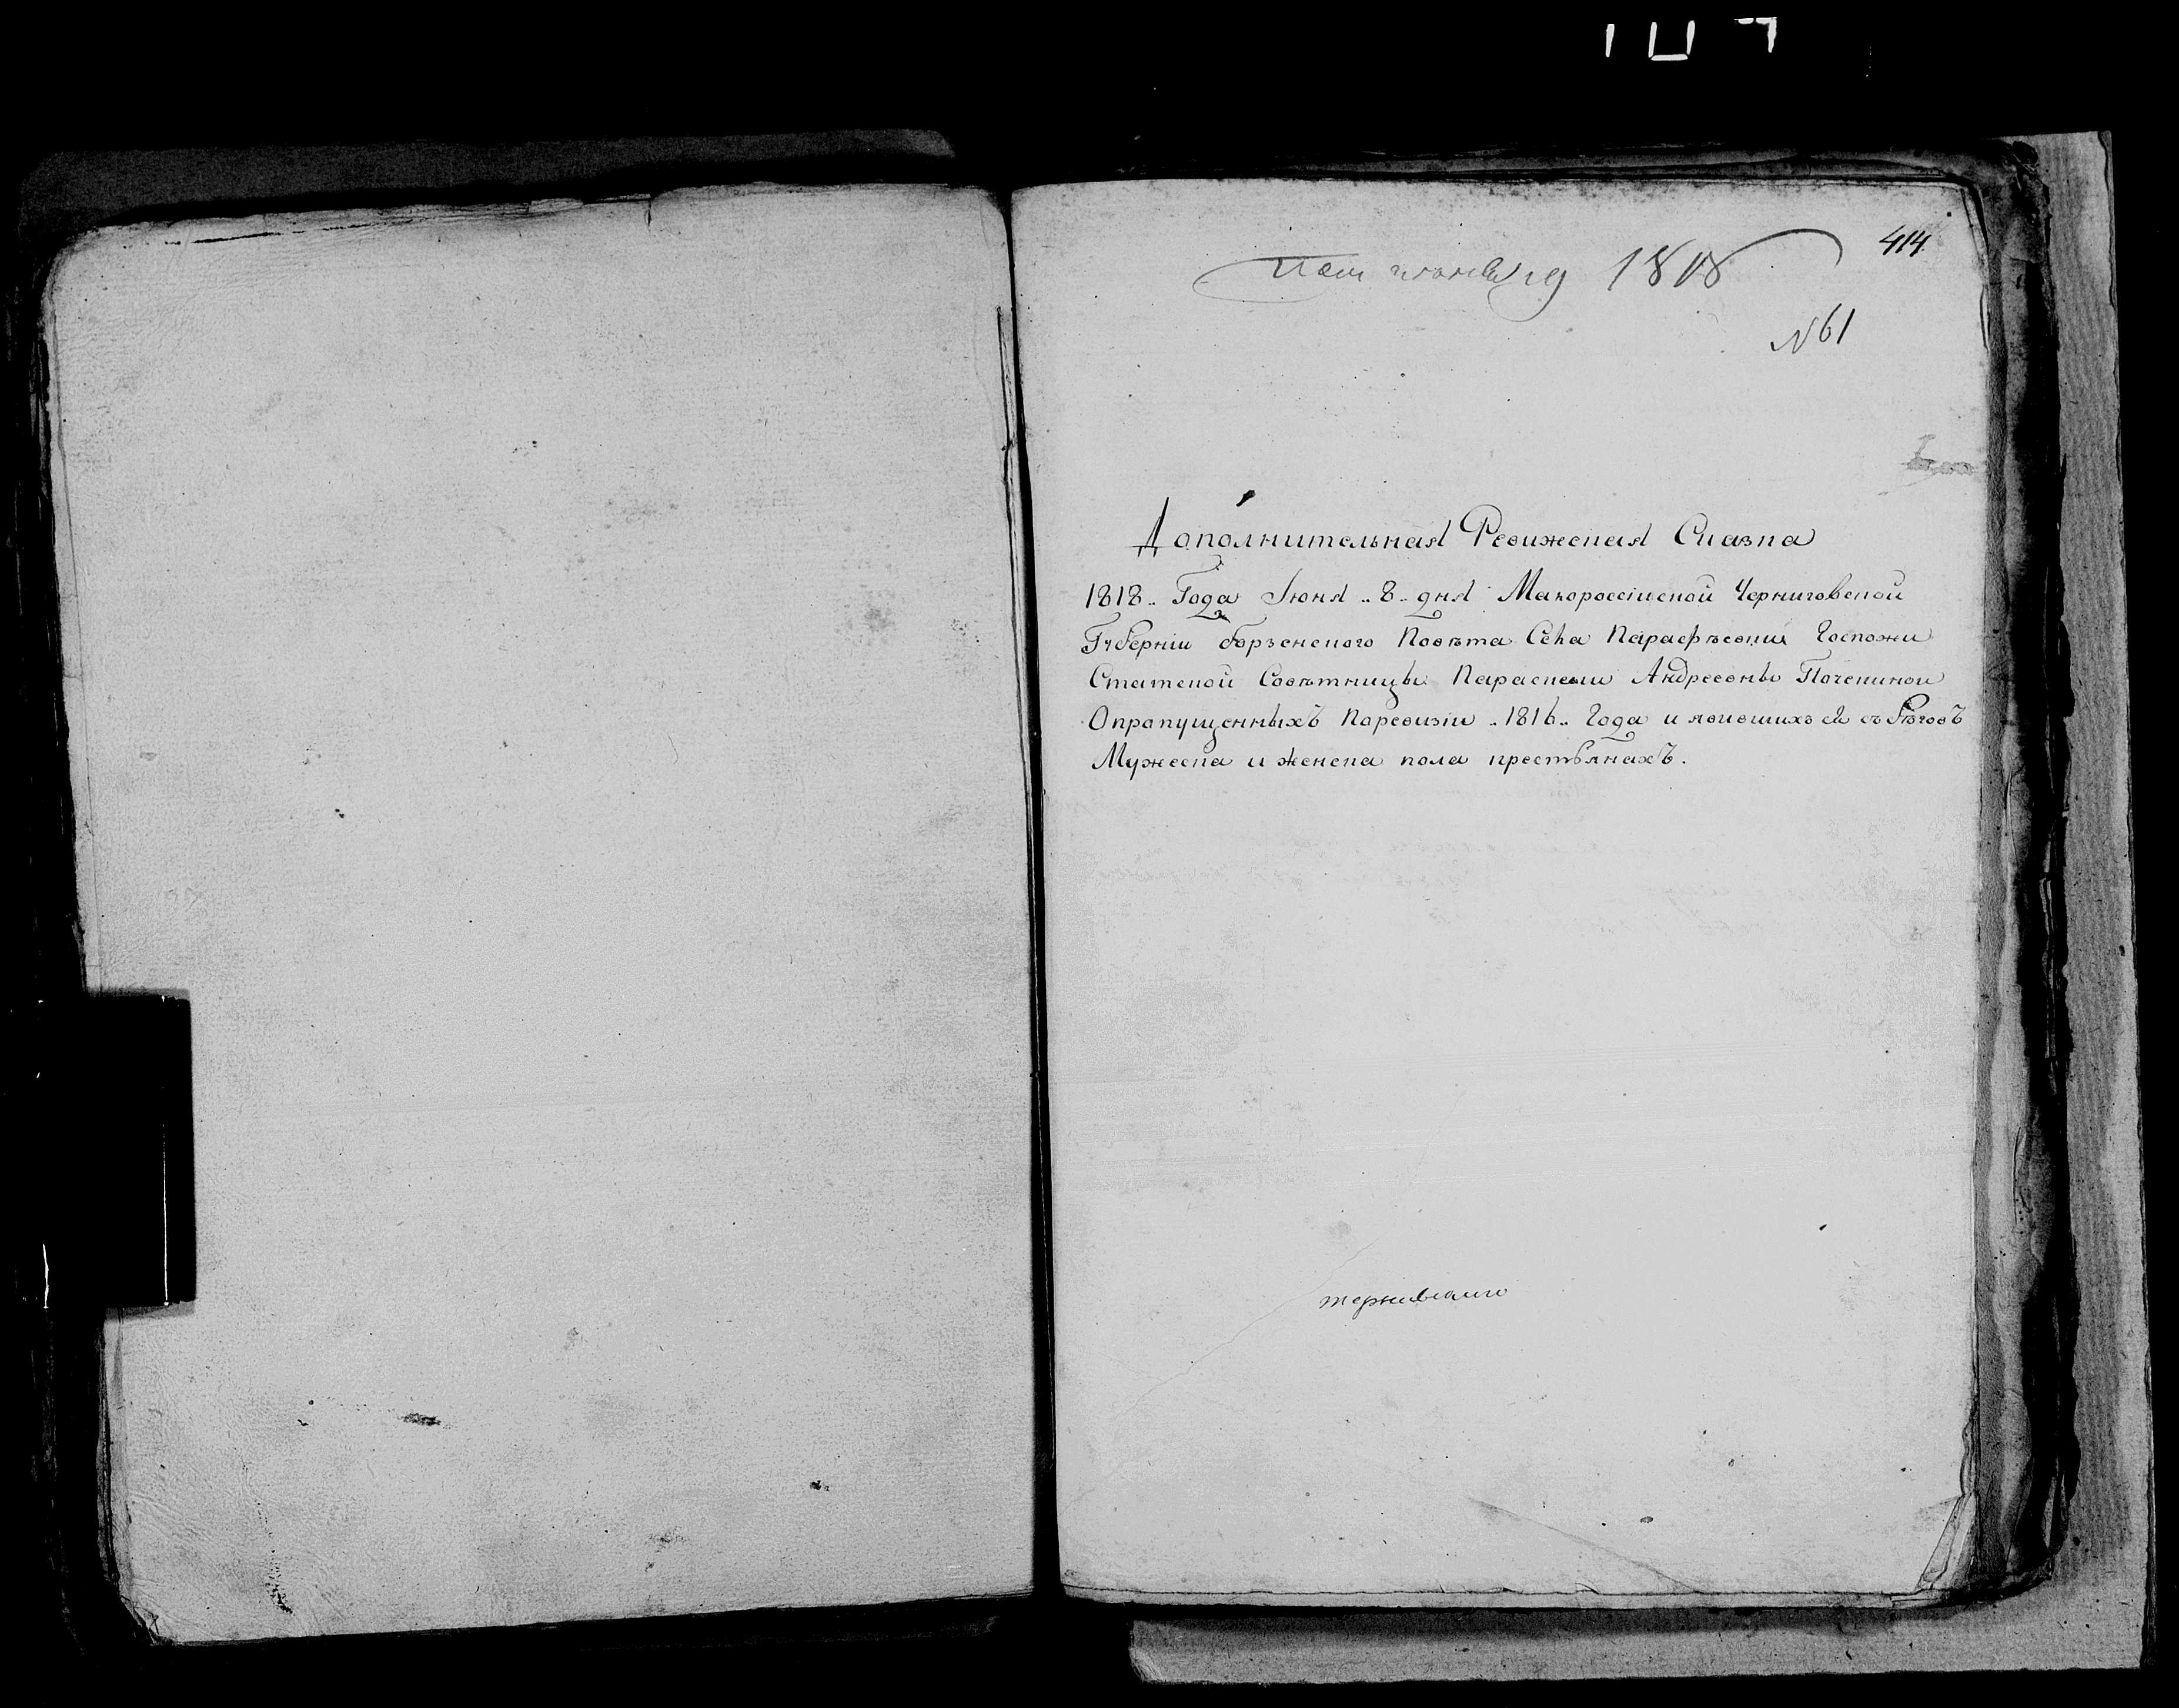 414
июня 19 1818
№ 61
Дополнительная Ревижская Сказка
1818.. Года Июня .. 8 .. дня Малороссійской Черниговской
Губерніи борзенского Повѣта Села Парафѣевки Госпожи
Статской Совѣтницы Параскеви Андреевны Почекиной
Опрапущенныхъ Паревизіи .. 1816 .. Года и явившихъ ся съ бѣговъ
Мужеска и женска пола крестьянахъ.